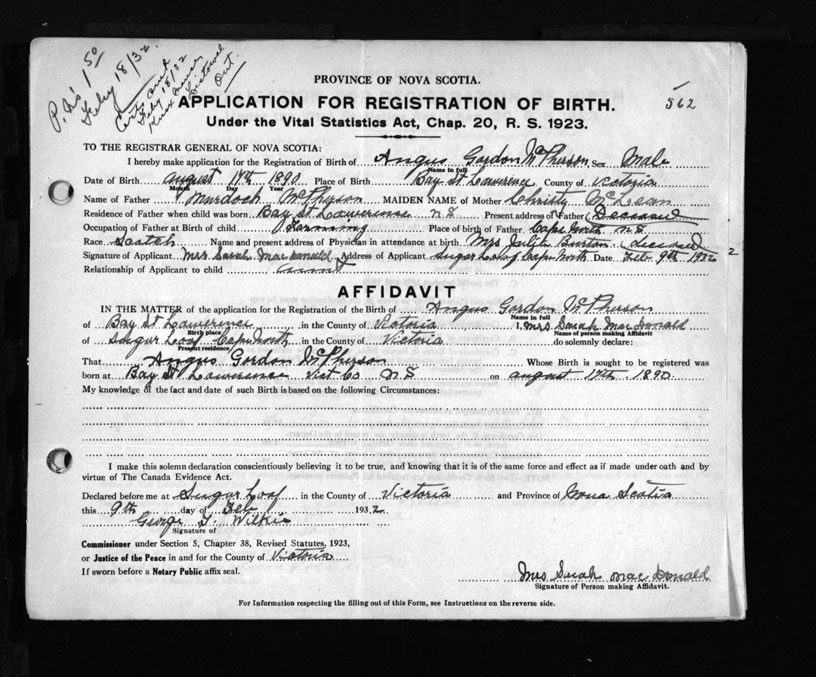 P. N's 1 50
Feby 18/32.
Cert and
Feby 18/32
Out.
562
PROVINCE OF NOVA SCOTIA.
APPLICATION FOR REGISTRATION OF BIRTH.
Under the Vital Statistics Act, Chap. 20, R. S. 1923.
TO THE REGISTRAR GENERAL OF NOVA SCOTIA:
I hereby make application for the Registration of Birth of Angus Gordon McPherson Sex Male
Name in full
Date of Birth august 17th 1890 Place of Birth Bay St Lawerence County of Victoria
Month Day Year
Name of Father Murdoch McPherson MAIDEN NAME of Mother Christy McLean
Residence of Father when child was born Bay St Lawerence N.S Present address of Father Deceased
Occupation of Father at Birth of child Farming Place of birth of Father Cape North N.S
Race. Scotch Name and present address of Physician in attendance at birth Mrs Burton (deceased
Signature of Applicant Mrs Sarah MacDonald Address of Applicant Sugar Loaf Cape North Date Feb 9th 1932
2
Relationship of Applicant to child aunt
AFFIDAVIT
IN THE MATTER of the application for the Registration of the Birth of Angus Gordon McPherson
Name in full
of Bay St Lawerence in the County of Victoria I, Mrs Sarah MacDonald
Birth place Name of person making Affidavit
of Sugar Loaf Cape North in the County of Victoria do solemnly declare:
Present residence
That Angus Gordon McPherson Whose Birth is sought to be registered was
born at Bay St Lawerence Vict Co N S on august 17th 1890.
My knowledge of the fact and date of such Birth is based on the following Circumstances:
I make this solemn declaration conscientiously believing it to be true, and knowing that it is of the same force and effect as if made under oath and by
virtue of The Canada Evidence Act.
Declared before me at Sugar Loaf in the County of Victoria and Province of Nova Scotia
this 9th day of Feb 1932
George T. Wilkie
Signature of
Commissioner under Section 5, Chapter 38, Revised Statutes, 1923,
or Justice of the Peace in and for the County of Victoria
If sworn before a Notary Public affix seal.
Mrs Sarah MacDonald
Signature of Person making Affidavit.
For Information respecting the filling out of this Form, see Instructions on the reverse side.